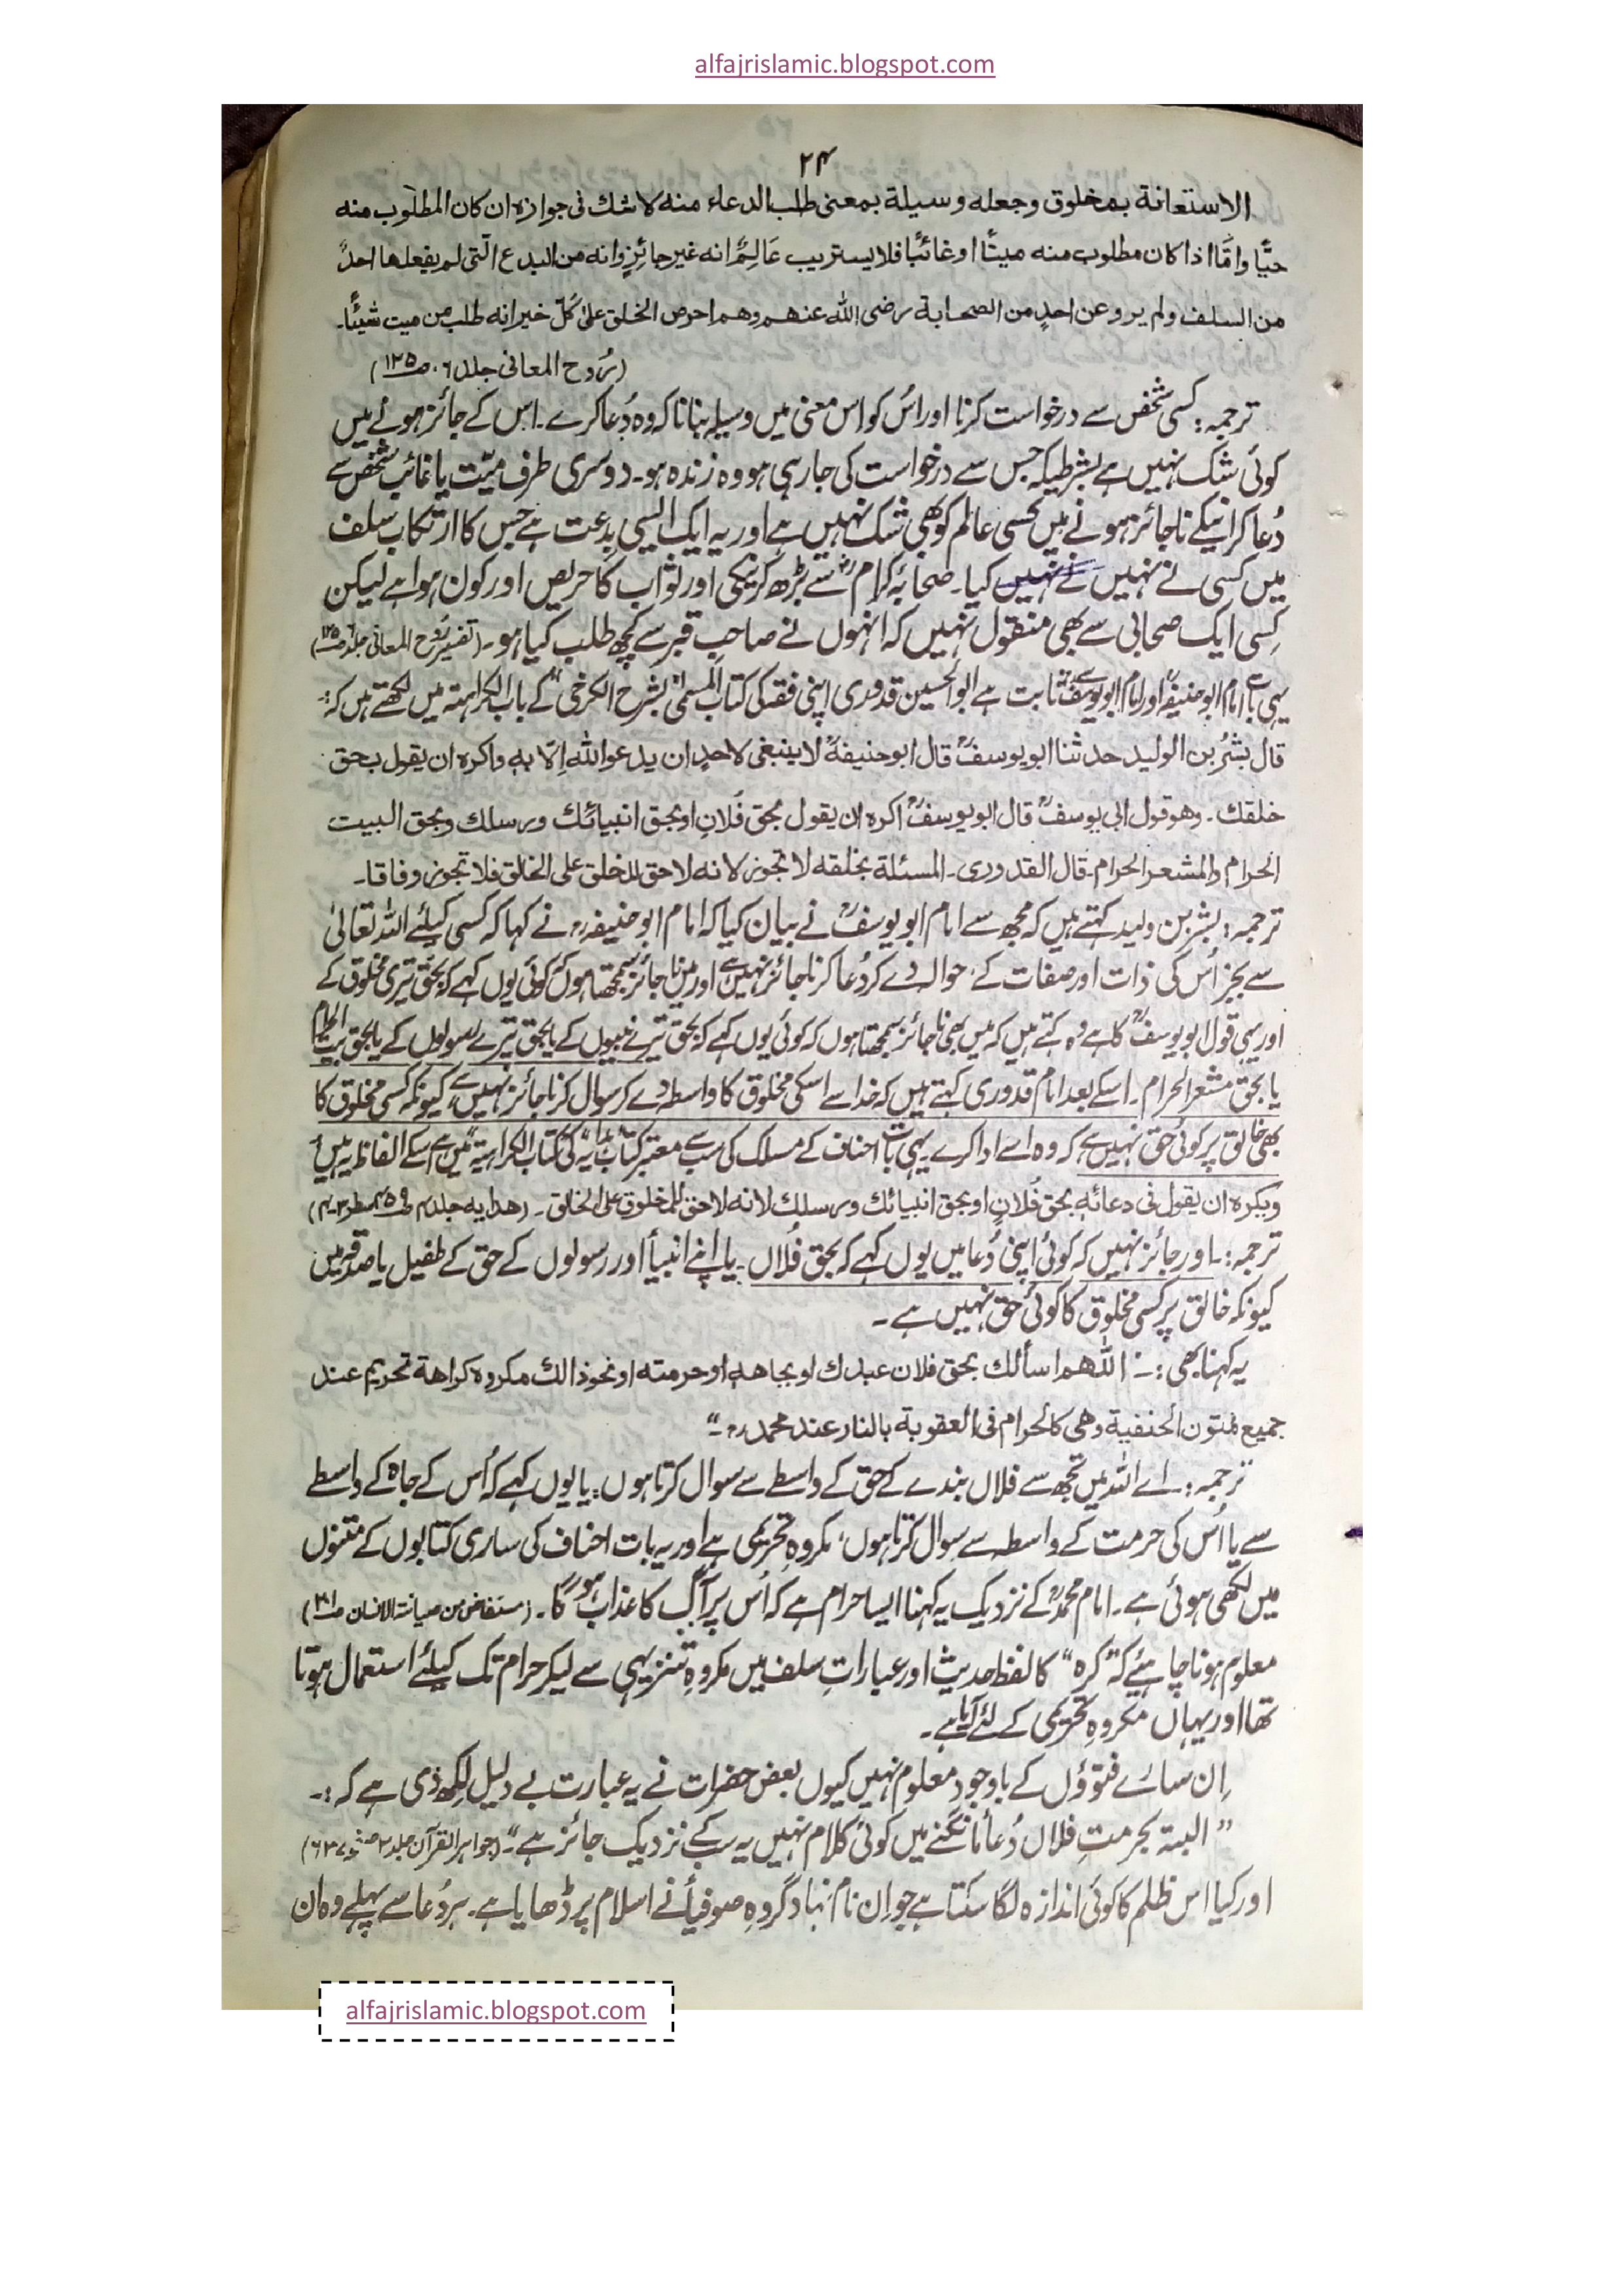 alfajrislamic.blogspot.com
۲۴
الاستعانة بمخلوق وجعله وسيلة بمعنى طلب الدعاء منه لاشك فى جوازه ان كان المطلوب منه
حيًّا وامّا اذا كان مطلوب منه ميتًا اوغائبًا فلا يستريب عَالِمٌ انه غير جائزٍ وانه من البدع الّتى لم يفعلها احدٌ
من السلف ولم يرو عن احدٍ من الصحابة رضى الله عنهم وهم احرص الخلق علىٰ كلّ خير انه طلب من ميت شيئًا۔
(رُوح المعانى جلد ۶۔ ص۱۲۵)
ترجمہ: کسی شخص سے درخواست کرنا اور اُس کو اس معنی میں وسیلہ بنانا کہ وہ دُعا کرے۔ اس کے جائز ہونے میں
کوئی شک نہیں ہے بشرطیکہ جس سے درخواست کی جارہی ہو وہ زندہ ہو۔ دوسری طرف میّت یا غائب شخص سے
دُعا کرانیکے ناجائز ہونے میں کسی عالم کو بھی شک نہیں ہے اور یہ ایک ایسی بدعت ہے جس کا ارتکاب سلف
میں کسی نے نہیں نے نہیں کیا۔ صحابۂ کرامؓ سے بڑھ کر نیکی اور ثواب کا حریص اور کون ہوا ہے لیکن
کِسی ایک صحابی سے بھی منقول نہیں کہ انہوں نے صاحبِ قبر سے کچھ طلب کیا ہو۔ (تفسیر رُوح المعانی جلد۶ ص۱۲۵)
یہی بات امام ابوحنیفہؒ اور امام ابویوسفؒ سے ثابت ہے ابوالحسین قدوری اپنی فقہ کی کتاب المسمّٰی "بشرح الکرخی" کے باب الکراہتہ میں لکھتے ہیں کہ:۔
قال بشرُ بن الوليد حدثنا ابويوسفؒ قال ابوحنيفةؒ لاينبغى لاحدٍ ان يدعو الله اِلّا به واكره ان يقول بحق
خلقك۔ وهوقول ابى يوسفؒ قال ابويوسفؒ اكره ان يقول بحق فُلانٍ اوبحق انبيائك ورسلك وبحق البيت
الحرام والمشعر الحرام۔ قال القدورى۔ المسئلة بخلقه لا تجوز لانه لاحق للخلق على الخالق فلا تجوز وفاقا۔
ترجمہ: بشر بن ولید کہتے ہیں کہ مجھ سے امام ابویوسفؒ نے بیان کیا کہ امام ابوحنیفہؒ نے کہا کہ کسی کیلئے اللہ تعالیٰ
سے بجز اُس کی ذات اور صفات کے حوالے دے کر دُعا کرنا جائز نہیں ہے اور میں ناجائز سمجھتا ہوں کہ کوئی یوں کہے کہ بحق تیری مخلوق کے
اور یہی قول ابویوسفؒ کا ہے وہ کہتے ہیں کہ میں بھی ناجائز سمجھتا ہوں کہ کوئی یوں کہے کہ بحق تیرے نبیوں کے یا بحق تیرے رسولوں کے یا بحق بیت الحرام
یا بحق مشعر الحرام۔ اسکے بعد امام قدوری کہتے ہیں کہ خدا سے اسکی مخلوق کا واسطہ دے کر سوال کرنا جائز نہیں ہے کیونکہ کسی مخلوق کا
بھی خالق پر کوئی حق نہیں ہے کہ وہ اسے ادا کرے یہی بات احناف کے مسلک کی سب سے معتبر کتاب "ہدایہ" کی کتاب الکراہیتہ میں ہے اسکے الفاظ یہ ہیں
ويكره ان يقول فى دعائه بحق فُلانٍ اوبحق انبيائك ورسلك لانه لاحق للمخلوق على الخالق۔ (هدايه جلد۴ ص۴۵۹ سطر ۳۔۴)
ترجمہ:۔ اور جائز نہیں کہ کوئی اپنی دُعا میں یوں کہے کہ بحق فُلاں۔ یا اپنے انبیأ اور رسولوں کے حق کے طفیل یا صدقہ میں
کیونکہ خالق پر کسی مخلوق کا کوئی حق نہیں ہے۔
یہ کہنا بھی:۔ اللّٰهم اسألك بحق فلان عبدك اوبجاهه اوحرمته اونحوذالك مكروه كراهة تحريم عند
جميع متون الحنفية وهى كالحرام فى العقوبة بالنار عند محمدؒ۔"
ترجمہ:۔ اے اللہ میں تجھ سے فلاں بندے کے حق کے واسطے سے سوال کرتا ہوں؛ یا یوں کہے کہ اُس کے جاہ کے واسطے
سے یا اُس کی حرمت کے واسطہ سے سوال کرتا ہوں، مکروہِ تحریمی ہے اور یہ بات احناف کی ساری کتابوں کے متنوں
میں لکھی ہوئی ہے۔ امام محمدؒ کے نزدیک یہ کہنا ایسا حرام ہے کہ اُس پر آگ کا عذاب ہو گا۔ (مستفاض من صیانتہ الانسان ص۲۸۱)
معلوم ہونا چاہئیے کہ "کرہ" کا لفظ حدیث اور عباراتِ سلف میں مکروہِ تنزیہی سے لیکر حرام تک کیلئے استعمال ہوتا
تھا اور یہاں مکروہِ تحریمی کے لئے آیا ہے۔
اِن سارے فتوؤں کے باوجود معلوم نہیں کیوں بعض حضرات نے یہ عبارت بے دلیل لکھ دی ہے کہ:۔
"البتہ بحرمتِ فلاں دُعأ مانگنے میں کوئی کلام نہیں یہ سب کے نزدیک جائز ہے"۔ (جواہر القرآن جلد۲
اور کیا اس ظلم کا کوئی اندازہ لگا سکتا ہے جو اِن نام نہاد گروہِ صوفیأ نے اسلام پر ڈھایا ہے۔ ہر دُعا سے پہلے وہ ان
alfajrislamic.blogspot.com